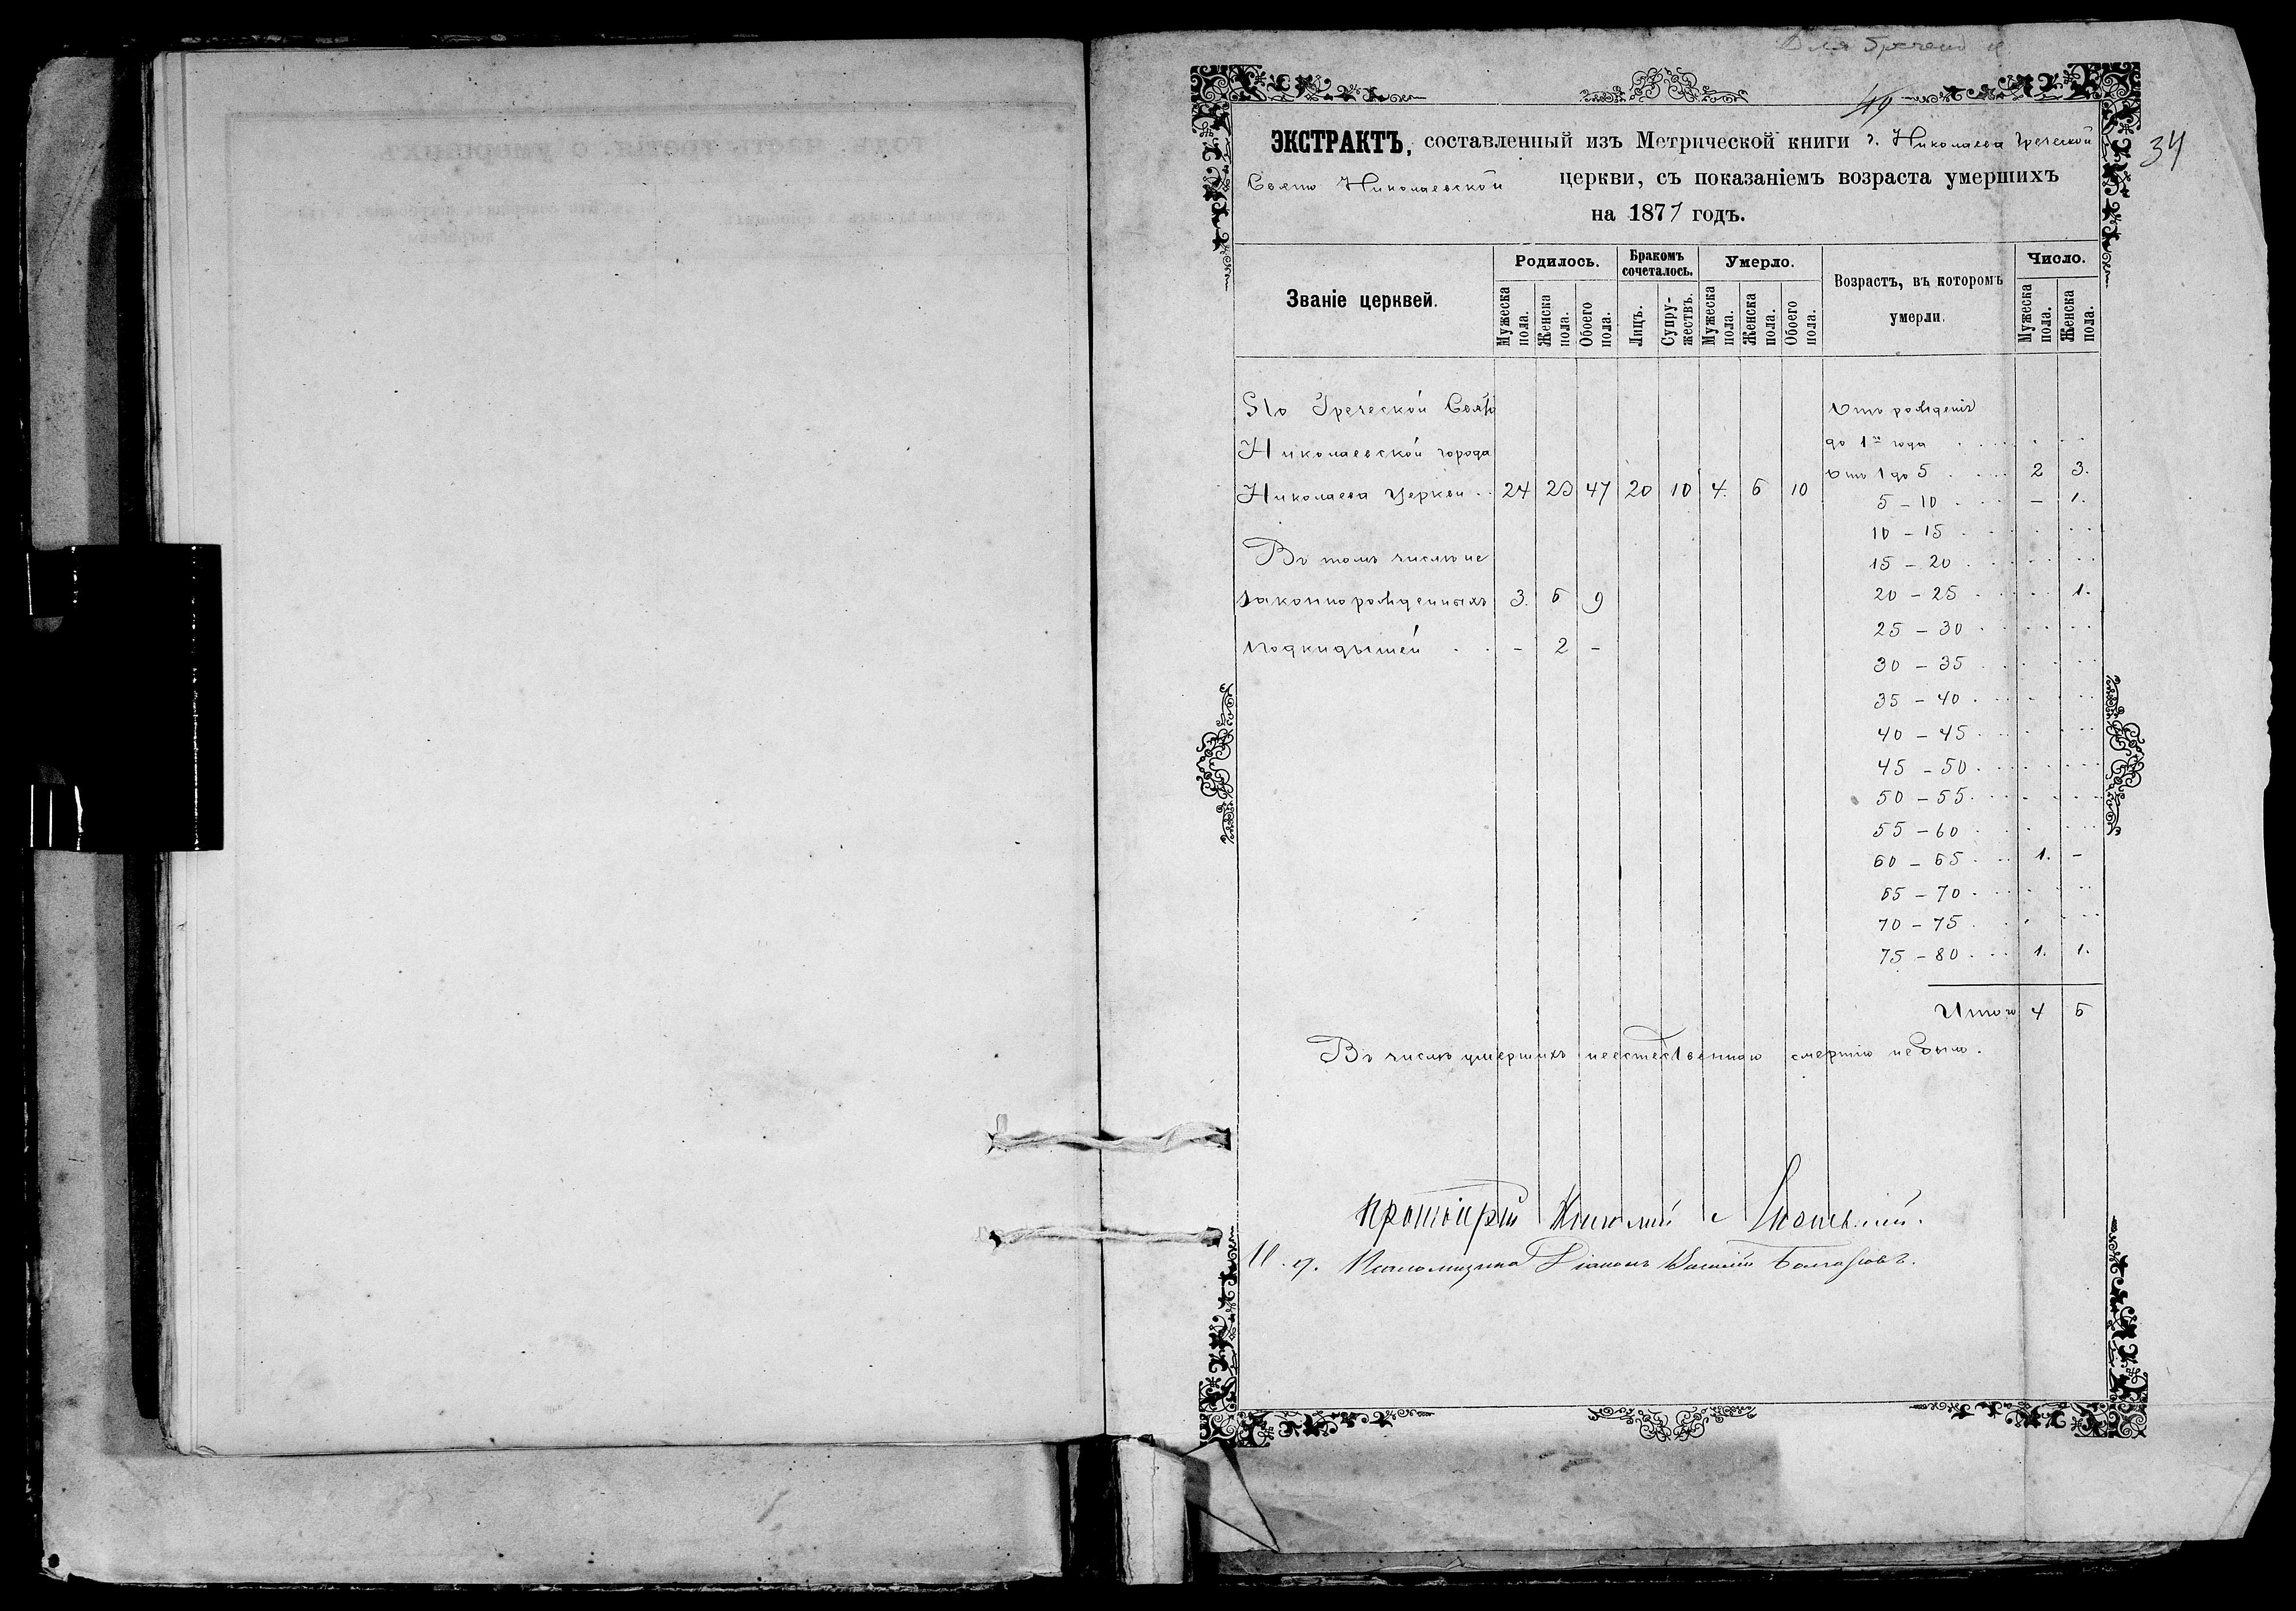 34
ЭКСТРАКТЪ, составленный изъ Метрической книги г. Николаева Греческой
Свято Николаевской церкви, съ показаніемъ возраста умершихъ
на 1871 годъ.
Званіе церквей.
Родилось.
Бракомъ сочеталось.
Умерло.
Возрастъ, въ которомъ умерли.
Число.
Мужеска пола. Женска пола. Обоего пола. Лицъ. Супружествъ. Мужеска пола. Женска пола. Обоего пола. Мужеска пола. Женска пола.
По Греческой Свято
Николаевской города
Николаева Церкви . . 24 23 47 20 10 4. 6 10
Въ томъ числѣ не
законнорожденныхъ 3. 6 9
подкидышей . . - 2 -
Отъ рожденія
до 1го года
Отъ 1 до 5 2 3.
5 - 10 - 1.
10 - 15
15 - 20
20 - 25 1.
25 - 30
30 - 35
35 - 40
40 - 45
45 - 50
50 - 55
55 - 60
60 - 65 1. -
65 - 70
70 - 75
75 - 80 1. 1.
Итого 4 6
Въ числѣ умершихъ неестественною смертію не было.
Протоіерей Николай
И. д. Псаломщика Діаконъ Василій